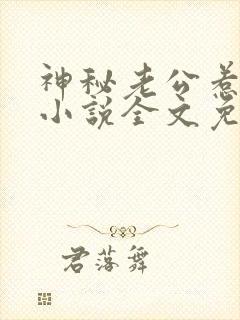 神秘老公惹
小说全文免
君落舞